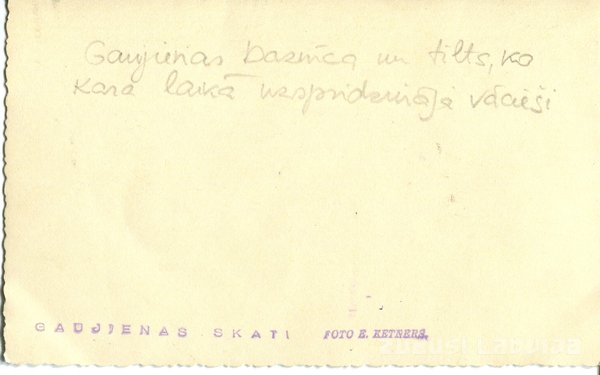 Gaujienas baznīca un tilts, ko
kara laikā uzspridzināja vācieši
GAUJIENAS SKATI FOTO E. KETNERS.
zudusi Latvija